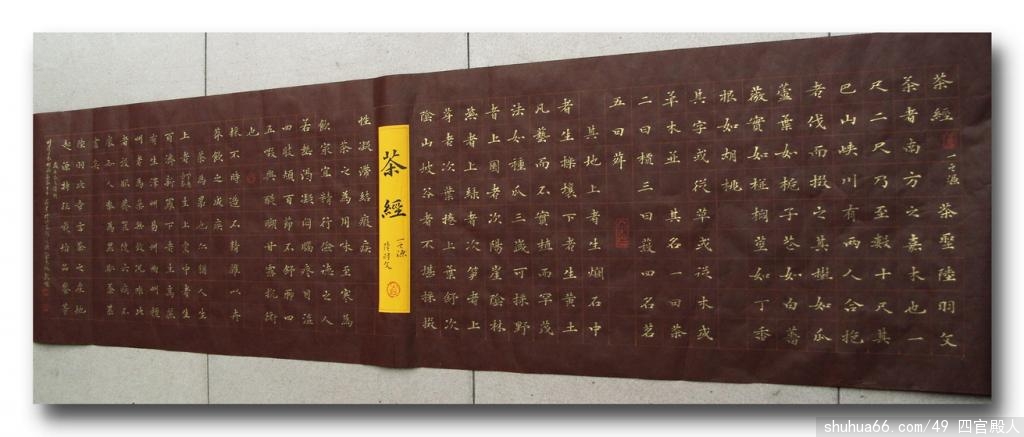 茶經 一之源 茶聖陸羽文
茶者南方之嘉木也一
尺二尺乃至數十尺其
巴山峽川有兩人合抱
者伐而掇之其樹如瓜
蘆葉如梔子花如白薔
薇實如栟櫚莖如丁香
根如胡桃
其字或從草或從木或
草木並其名一曰茶
二曰檟三曰蔎四曰茗
五曰荈
其地上者生爛石中
者生櫟壤下者生黃土
凡藝而不實植而罕茂
法如種瓜三歲可採野
者上園者次陽崖陰林
紫者上綠者次筍者上
芽者次葉捲上葉舒次
陰山坡谷者不堪採掇
茶經
一之源
陸羽文
性凝滯結瘕疾
茶之為用味至寒為
飲最宜精行儉德之人
若熱渴凝悶腦疼目澀
四肢煩百節不舒聊四
五啜與醍醐甘露抗衡
也
採不時造不精雜以卉
莽飲之成疾
茶為累也亦猶人參
上者生上黨中者生
百濟新羅下者生高麗
有生澤州易州幽州檀
州者為藥無效況非此
者設服薺苨使六疾不
瘳知人參為累則茶累
盡矣
shuhua66.com/49 四官殿人